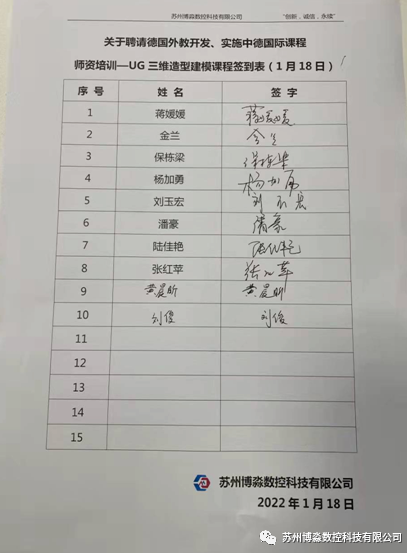 苏州博淼数控技术有限公司 “创新,诚信,永续”
关于聘请德国外教开发、实施中德国际课程
师资培训—UG 三维造型建模课程签到表(1 月 18 日)
序 号 姓 名 签 字
1 蒋媛媛 蒋媛媛
2 金兰 金兰
3 保栋梁 保栋梁
4 杨加勇 杨加勇
5 刘玉宏 刘玉宏
6 潘豪 潘豪
7 陆佳艳 陆佳艳
8 张红苹 张红苹
9 黄晨昕 黄晨昕
10 刘俊 刘俊
11
12
13
14
15
苏州博淼数控科技有限公司
2022 年 1 月 18 日
苏州博淼数控科技有限公司